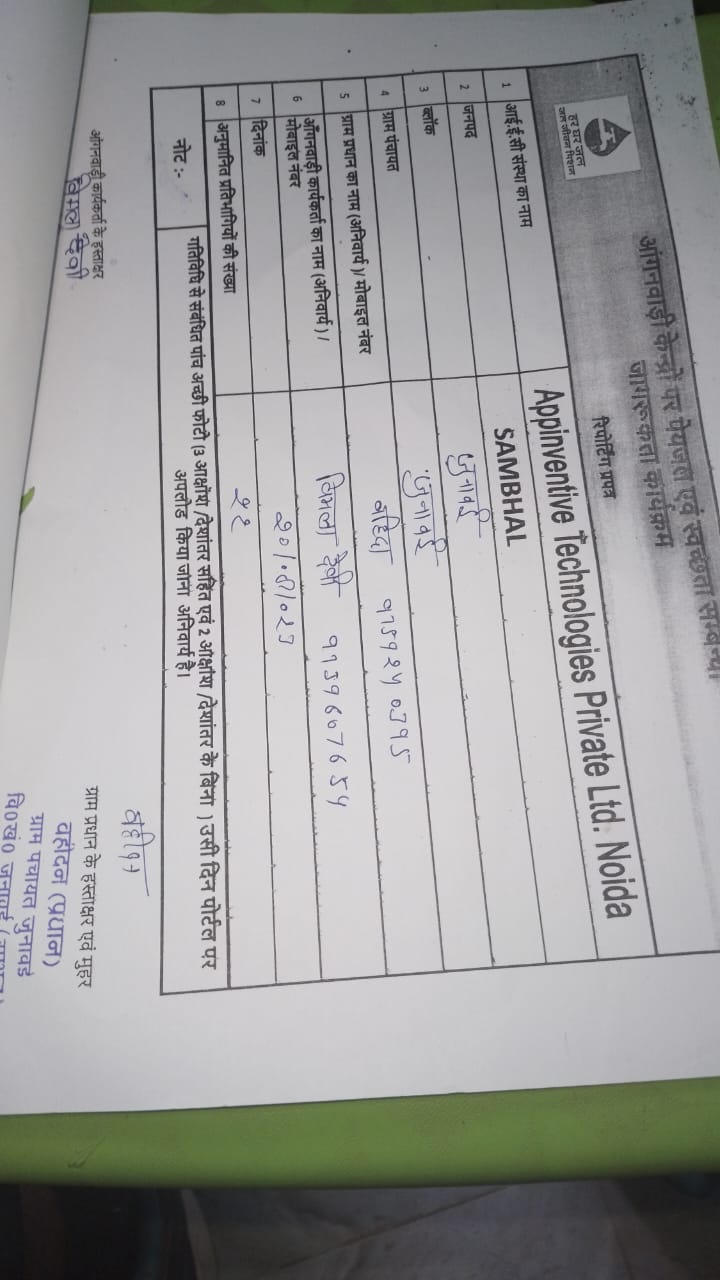 आंगनवाड़ी केन्द्रों पर पेयजल एवं स्वच्छता सम्बन्धी
जागरूकता कार्यक्रम
रिपोर्टिंग प्रपत्र
हर घर जल
जल जीवन मिशन
1 आई.ई.सी संस्था का नाम Appinventive Technologies Private Ltd. Noida
2 जनपद SAMBHAL
3 ब्लॉक जुनावई
4 ग्राम पंचायत जुनावई
5 ग्राम प्रधान का नाम (अनिवार्य )/ मोबाइल नंबर
6 आँगनवाड़ी कार्यकर्ता का नाम (अनिवार्य ) / मोबाइल नंबर विमला देवी
7 दिनांक
8 अनुमानित प्रतिभागियों की संख्या
नोट :- गतिविधि से संबंधित पांच अच्छी फोटो (3 आक्षांश /देशांतर सहित एवं 2 आक्षांश /देशांतर के बिना ) उसी दिन पोर्टल पर
अपलोड किया जाना अनिवार्य है।
आंगनवाड़ी कार्यकर्ता के हस्ताक्षर
विमला देवी
ग्राम प्रधान के हस्ताक्षर एवं मुहर
वहीदन (प्रधान)
ग्राम पंचायत जुनावई
वि0खं0 जुनावई